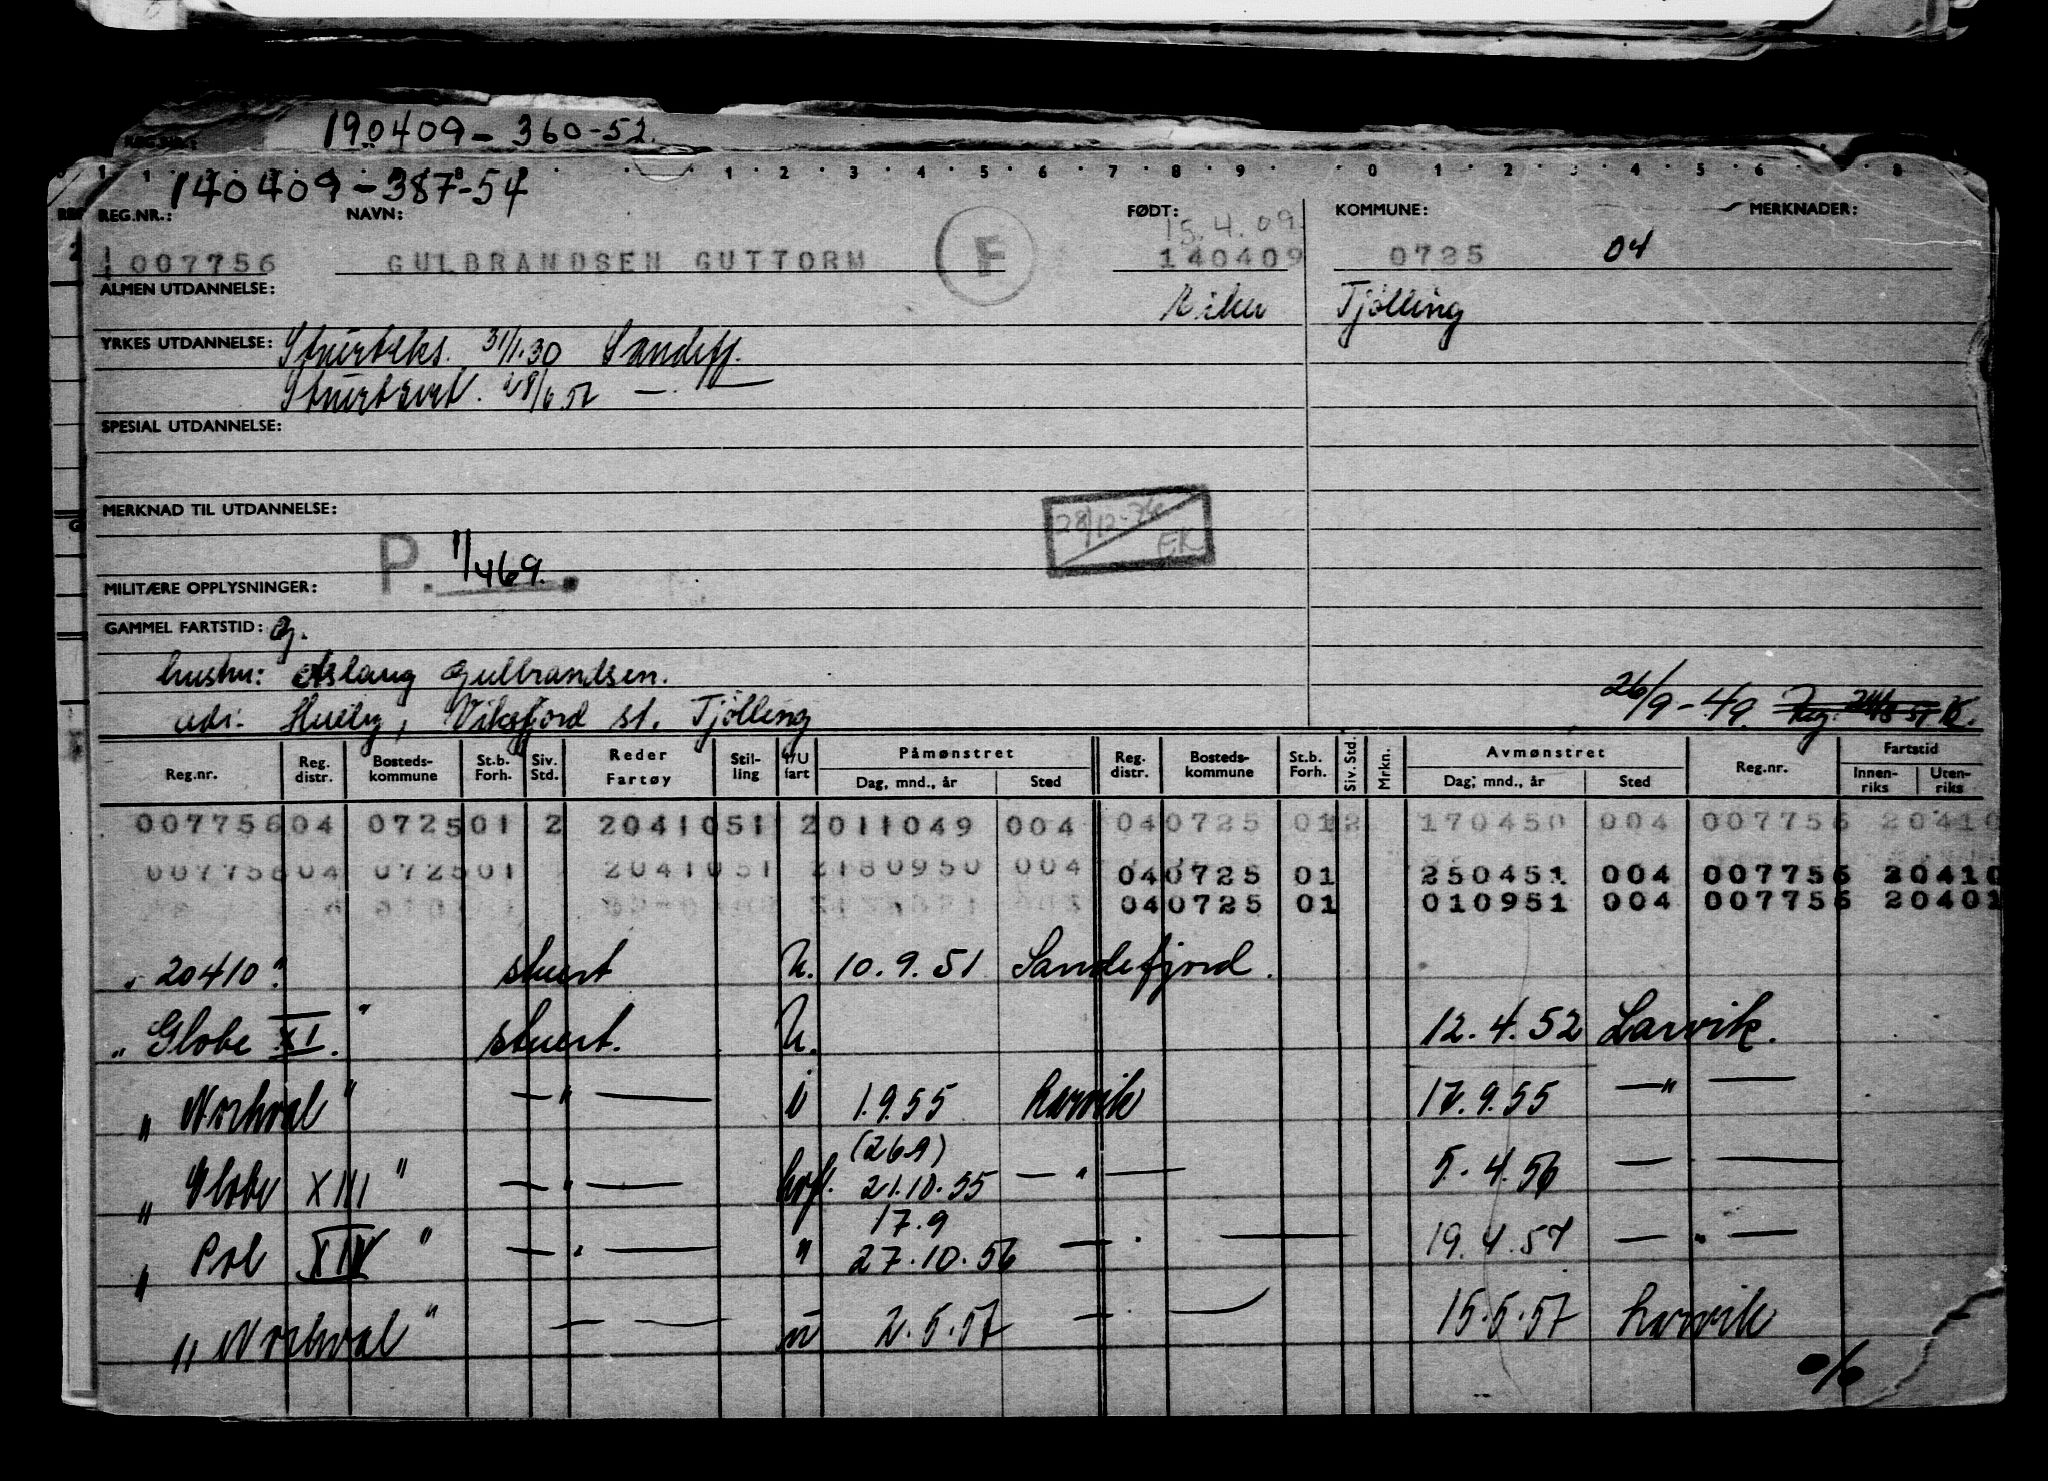 190409-360-52.
140409-387-54
REG.NR.: NAVN: FØDT: KOMMUNE: MERKNADER:
15.4.09.
007756 GULBRANDSEN GUTTORM F 140409 0725 04
ALMEN UTDANNELSE: Tjølling
YRKES UTDANNELSE: 31/1.30 Sandefj.
28/6.52 —
SPESIAL UTDANNELSE:
MERKNAD TIL UTDANNELSE: 28/12-74 EK
P. 1/469.
MILITÆRE OPPLYSNINGER:
GAMMEL FARTSTID:
hustru: Aslaug Gulbrandsen.
adr. Viksfjord st. Tjølling 26/9-49
Reg.nr. Reg. distr. Bosteds-kommune St.b. Forh. Siv. Std. Reder Fartøy Stil-ling I/U fart Påmønstret Dag, mnd., år Sted Reg. distr. Bosteds-kommune St.b. Forh. Siv. Std. Mrkn. Avmønstret Dag, mnd., år Sted Reg.nr. Fartstid Innen-riks Uten-riks
007756 04 0725 01 2 2041051 2 011049 004 04 0725 01 2 170450 004 007756 20410
007756 04 0725 01 2041051 2 180950 004 04 0725 01 250451 004 007756 20410
04 0725 01 010951 004 007756 20401
" 20410" stuert U. 10.9.51 Sandefjord.
" Globe XI." stuert. U. 12.4.52 Larvik.
" Norhval" — " — i 1.9.55 Larvik 17.9.55 — " —
(26.9)
" Globe XIII" — " — hvf. 21.10.55 — " — 5.4.56 — " —
17.9
" Pol XIV" — " — " 27.10.56 — " — 19.4.57 — " —
" Norhval" — — 2.5.57 — " — 15.5.57 Larvik